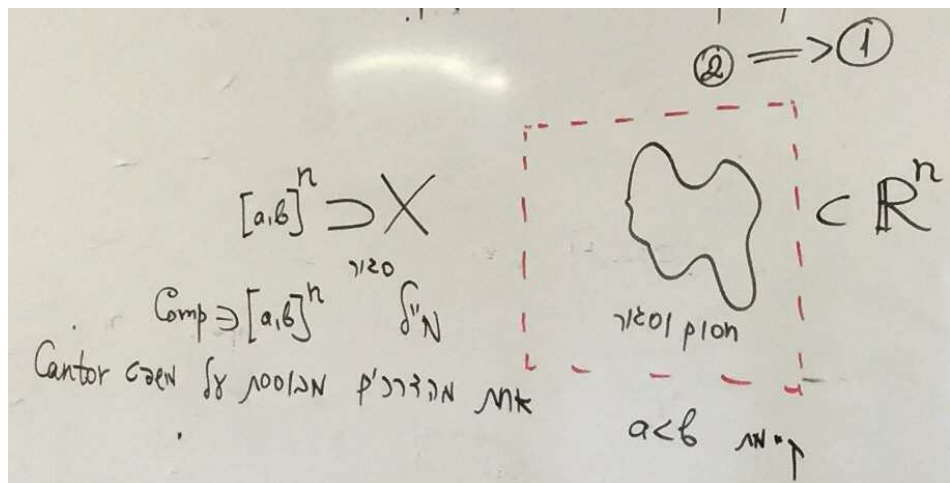 ② => ①
[a,b]ⁿ ⊃ X ⊂ ℝⁿ
סגור
חסום וסגור
Comp ∋ [a,b]ⁿ מ"ל
אחת מהדרכים מבוססת על משפט Cantor
קיימת a<b